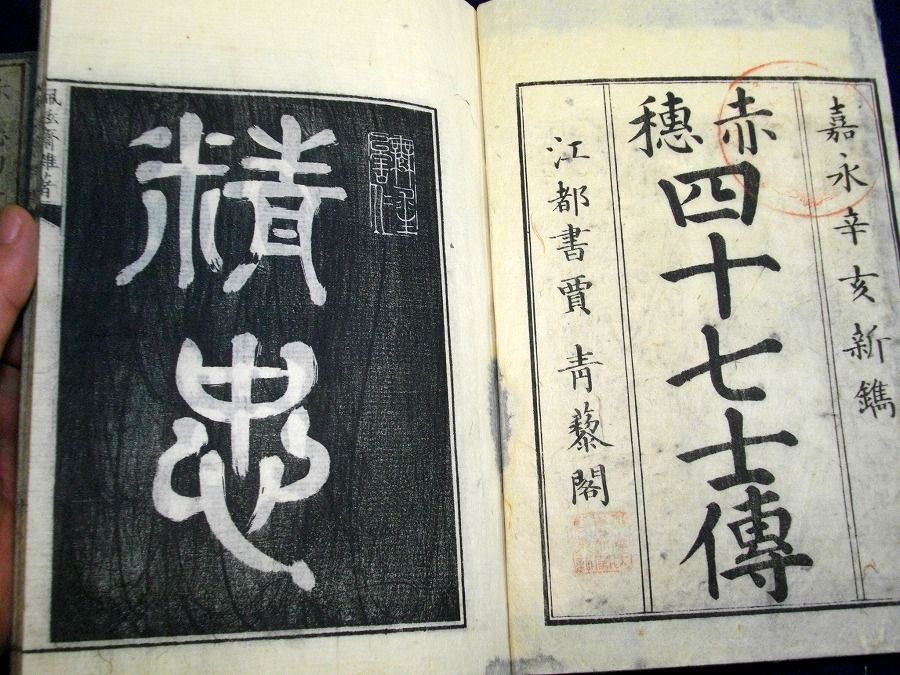 嘉永辛亥新鐫
赤穗四十七士傳
江都書賈 青藜閣
精忠
佩弦齋雜著